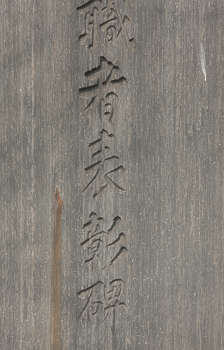 職者表彰碑